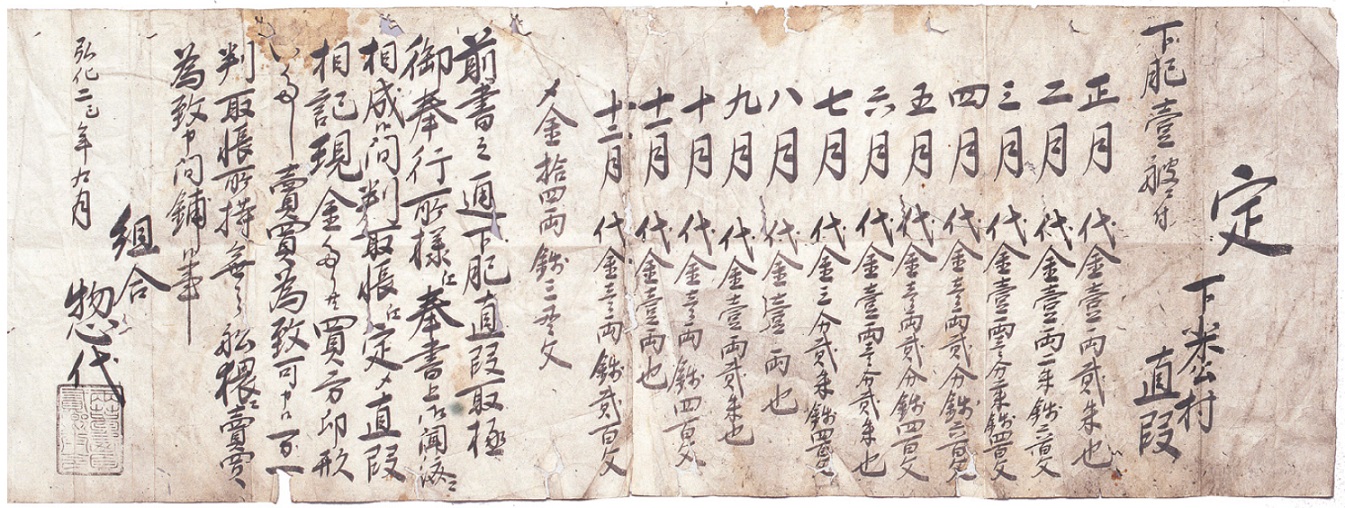 定
下肥壹艘ニ付
下米公村
直段
正月 代金壹両貳朱也
二月 代金壹両一朱銭二百文
三月 代金壹両壹分一朱銭四百文
四月 代金壹両貳分銭六百文
五月 代金壹両貳分銭四百文
六月 代金壹両壹分貳朱也
七月 代金三分貳朱銭四百文
八月 代金壹両也
九月 代金壹両貳朱也
十月 代金壹両銭四百文
十一月 代金壹両也
十二月 代金壹両銭貳百文
〆金拾四両銭三百文
前書之通下肥直段取極
御奉行所様江奉書上御聞済ニ
相成候間判取帳江定〆直段
相記現金ニ而買方印形
いたし賣買為致可申候万一
判取帳所持無之船猥ニ賣買
為致申間鋪候事
弘化二巳年九月
組合
惣代